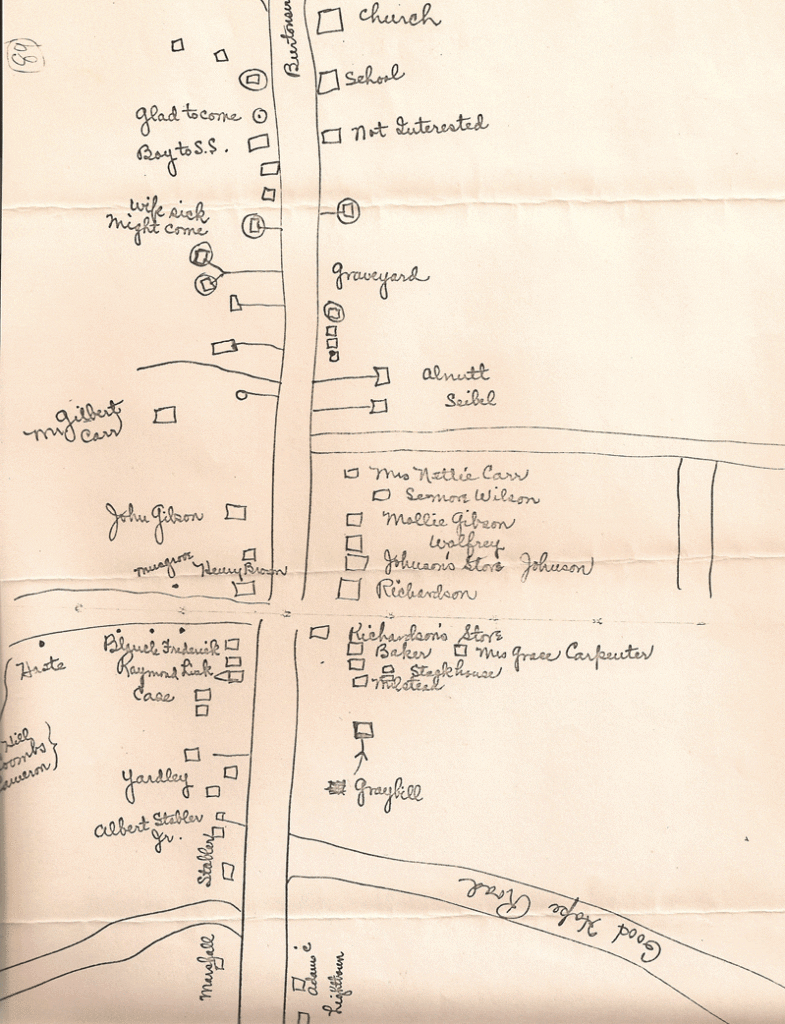 (89)
Church
School
Glad to come
Not Interested
Boy to S.S.
Wife sick
Might come
Graveyard
Alnutt
Seibel
Gilbert
Carr
Mrs Nettie Carr
Wilson
John Gibson
Mollie Gibson
Wolfrey
Musgrove
Henry Brown
Johnson's Store Johnson
Richardson
Richardson's Store
Frederick
Baker
Mrs Grace Carpenter
Raymond
Stackhouse
Milstead
Case
Hill
Yardley
Graybill
Albert Stabler
Jr.
Stabler
Good Hope Road
Marshall